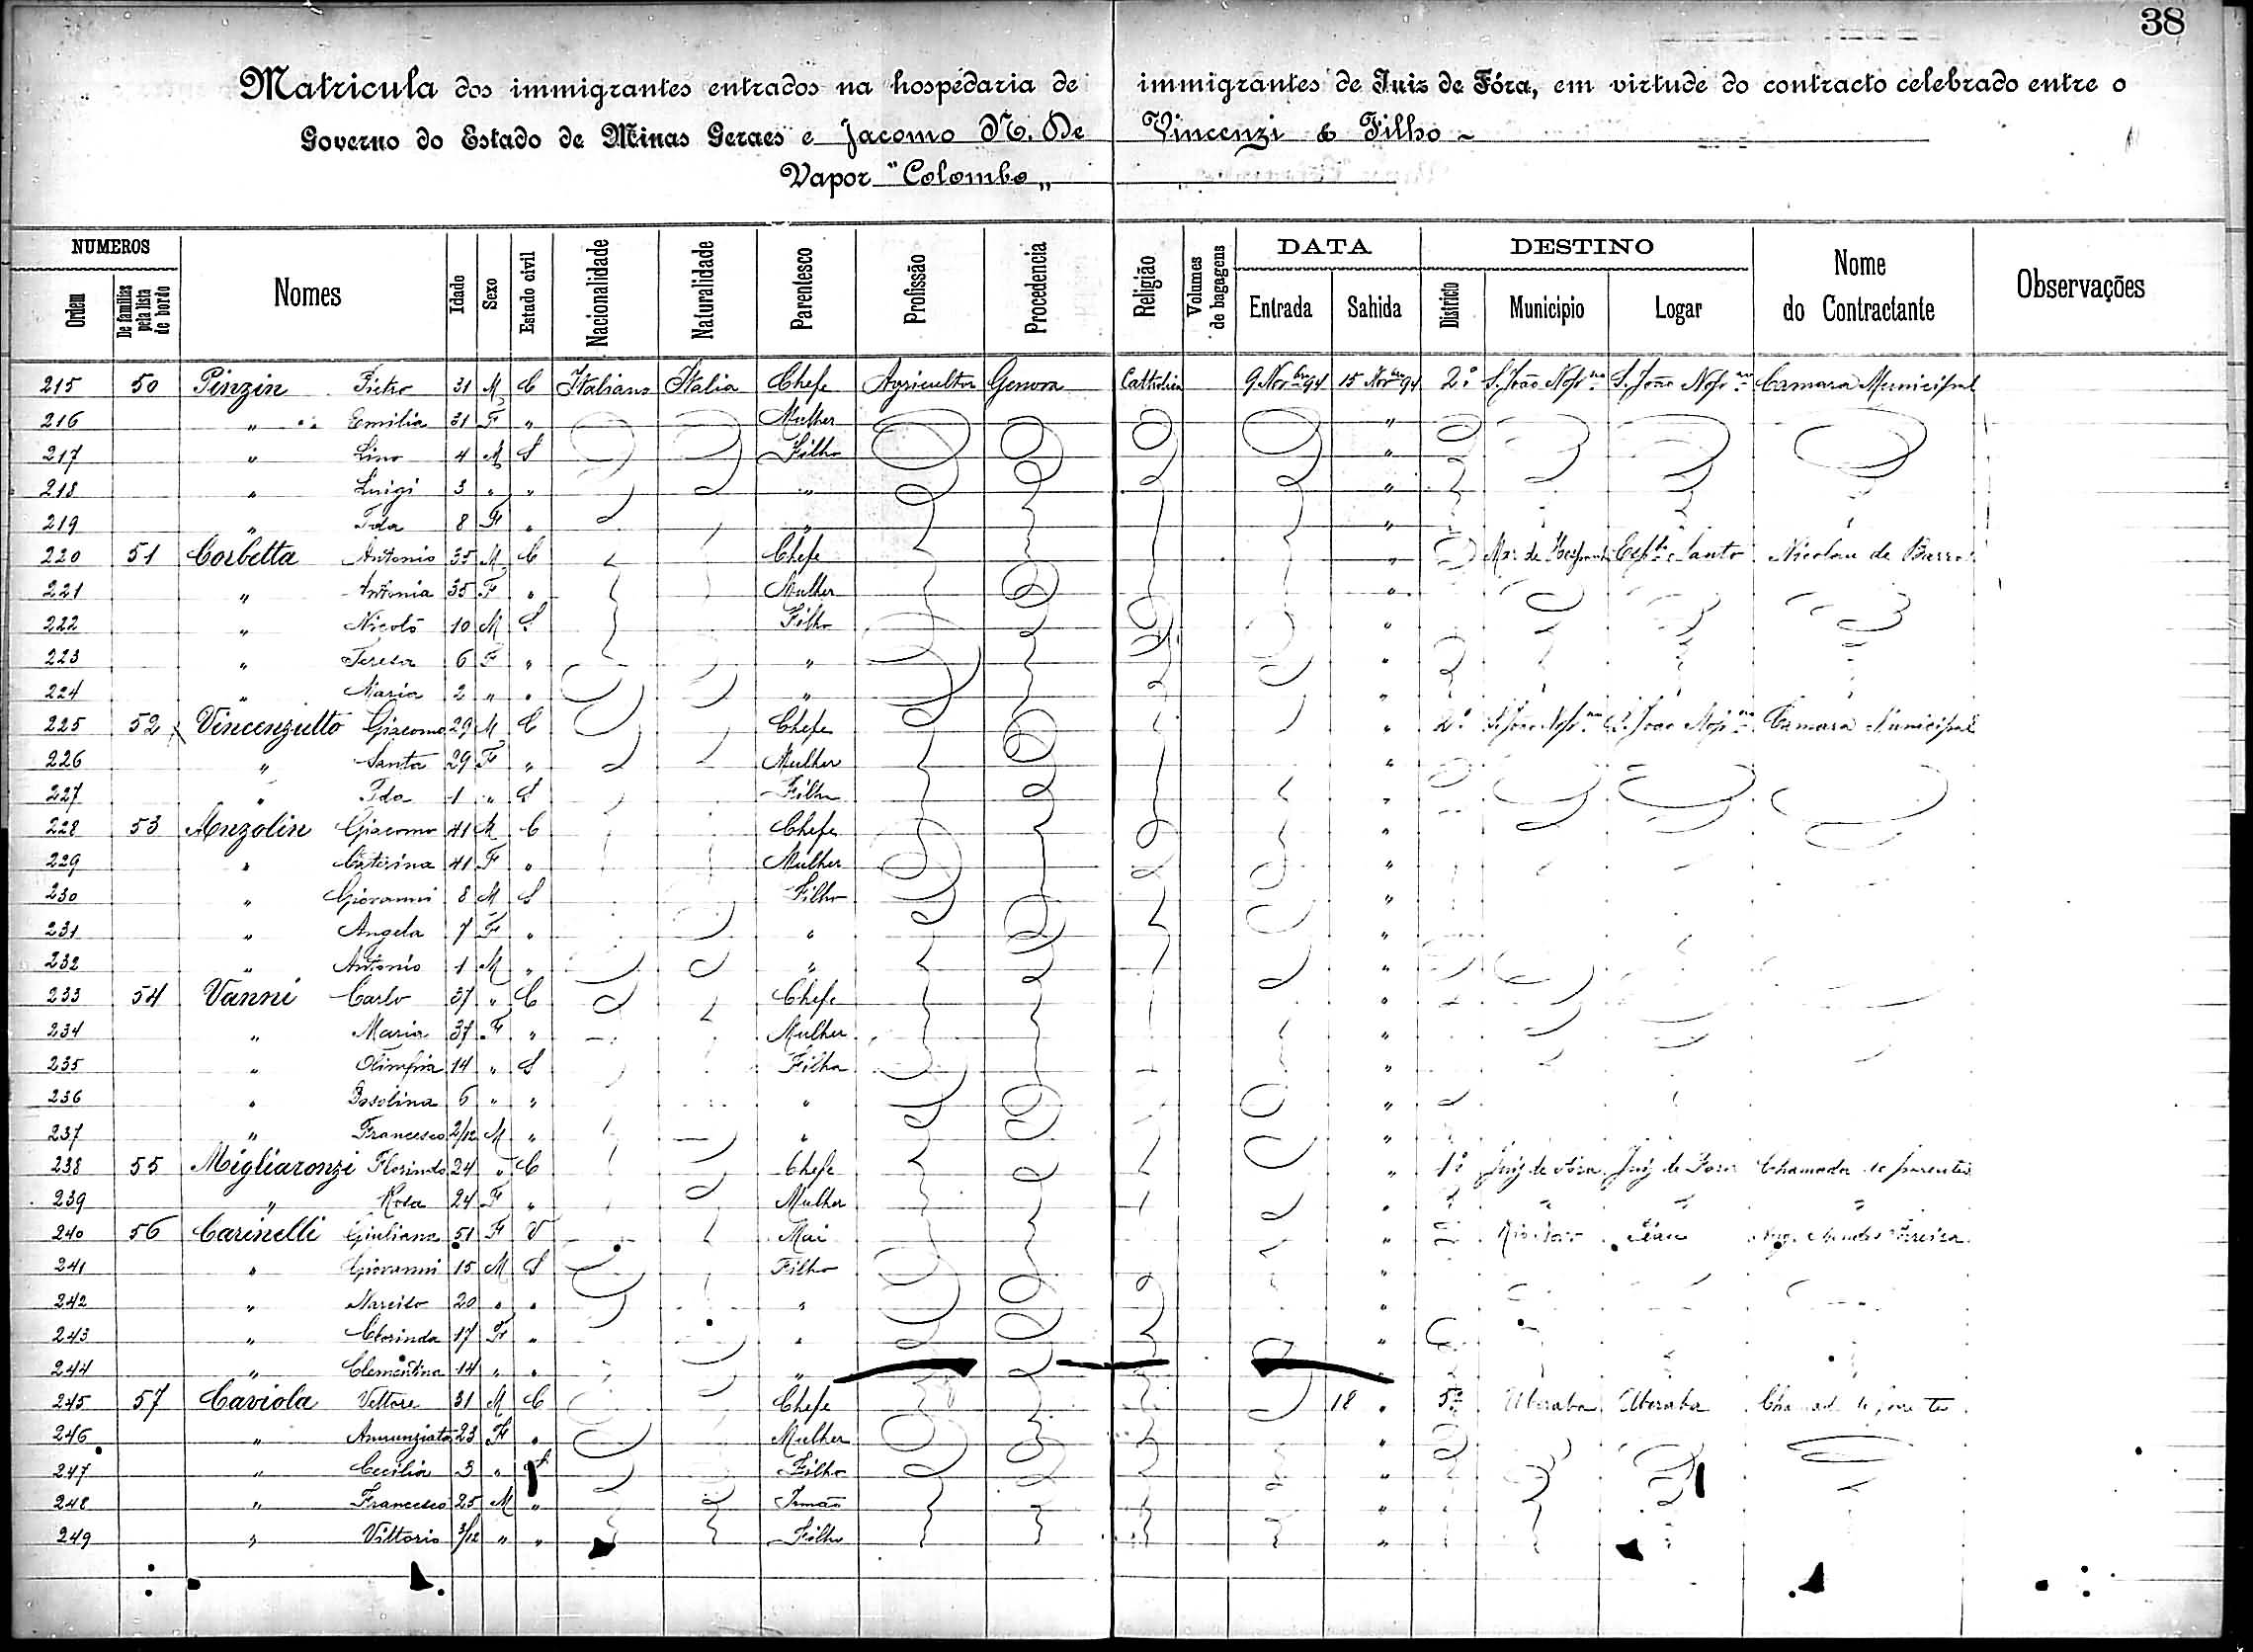 38
Matricula dos immigrantes entrados na hospedaria de immigrantes de Juiz de Fóra, em virtude do contracto celebrado entre o
Governo do Estado de Minas Geraes e Jacomo N. De Vincenzi & Filho
Vapor "Colombo"
NUMEROS DATA DESTINO
Ordem De familias pela lista de bordo Nomes Idade Sexo Estado civil Nacionalidade Naturalidade Parentesco Profissão Procedencia Religião Volumes de bagagens Entrada Sahida Districto Municipio Logar Nome do Contractante Observações
215 50 Pinzin Pietro 31 M C Italiano Italia Chefe Agricultor Genova Catholica 9 Novbro 94 15 Novbro 94 2º S. João Nepno S. João Nepno Camara Municipal
216 " Emilia 31 F " Mulher "
217 " Lino 4 M S Filho "
218 " Luigi 3 " " " "
219 " Ida 8 F " " "
220 51 Corbetta Antonio 35 M C Chefe " Mar de Hespanha Espto Santo Nicolau de Barros
221 " Antonia 35 F " Mulher "
222 " Nicolò 10 M S Filho "
223 " Teresa 6 F " " "
224 " Maria 2 " " " "
225 52 Vincenzutto Giacomo 29 M C Chefe " 2º S. João Nepno S. João Nepno Camara Municipal
226 " Santa 29 F " Mulher "
227 " Ida 1 " S Filha "
228 53 Anzolin Giacomo 41 M C Chefe "
229 " Caterina 41 F " Mulher "
230 " Giovanni 8 M S Filho "
231 " Angela 7 F " " "
232 " Antonio 1 M " " "
233 54 Vanni Carlo 37 " C Chefe "
234 " Maria 37 F " Mulher "
235 " Olimpia 14 " S Filha "
236 " 6 " " " "
237 " Francesco 2/12 M " " "
238 55 Migliaronzi Florindo 24 " C Chefe " 1º Juiz de Fóra Juiz de Fora Chamada de parentes
239 " Rosa 24 F " Mulher " " " "
240 56 Carinelli Giuliana 51 F V Mai "
241 " Giovanni 15 M S Filho "
242 " Narciso 20 " " " "
243 " Clorinda 17 F " " "
244 " Clementina 14 " " " "
245 57 Caviola Vettore 31 M C Chefe 18 " 5º Uberaba Uberaba
246 " Annunziata 23 F " Mulher "
247 " Cecilia 3 " S Filha "
248 " Francesco 25 M " Irmão "
249 " Vittorio 3/12 " " Filho "